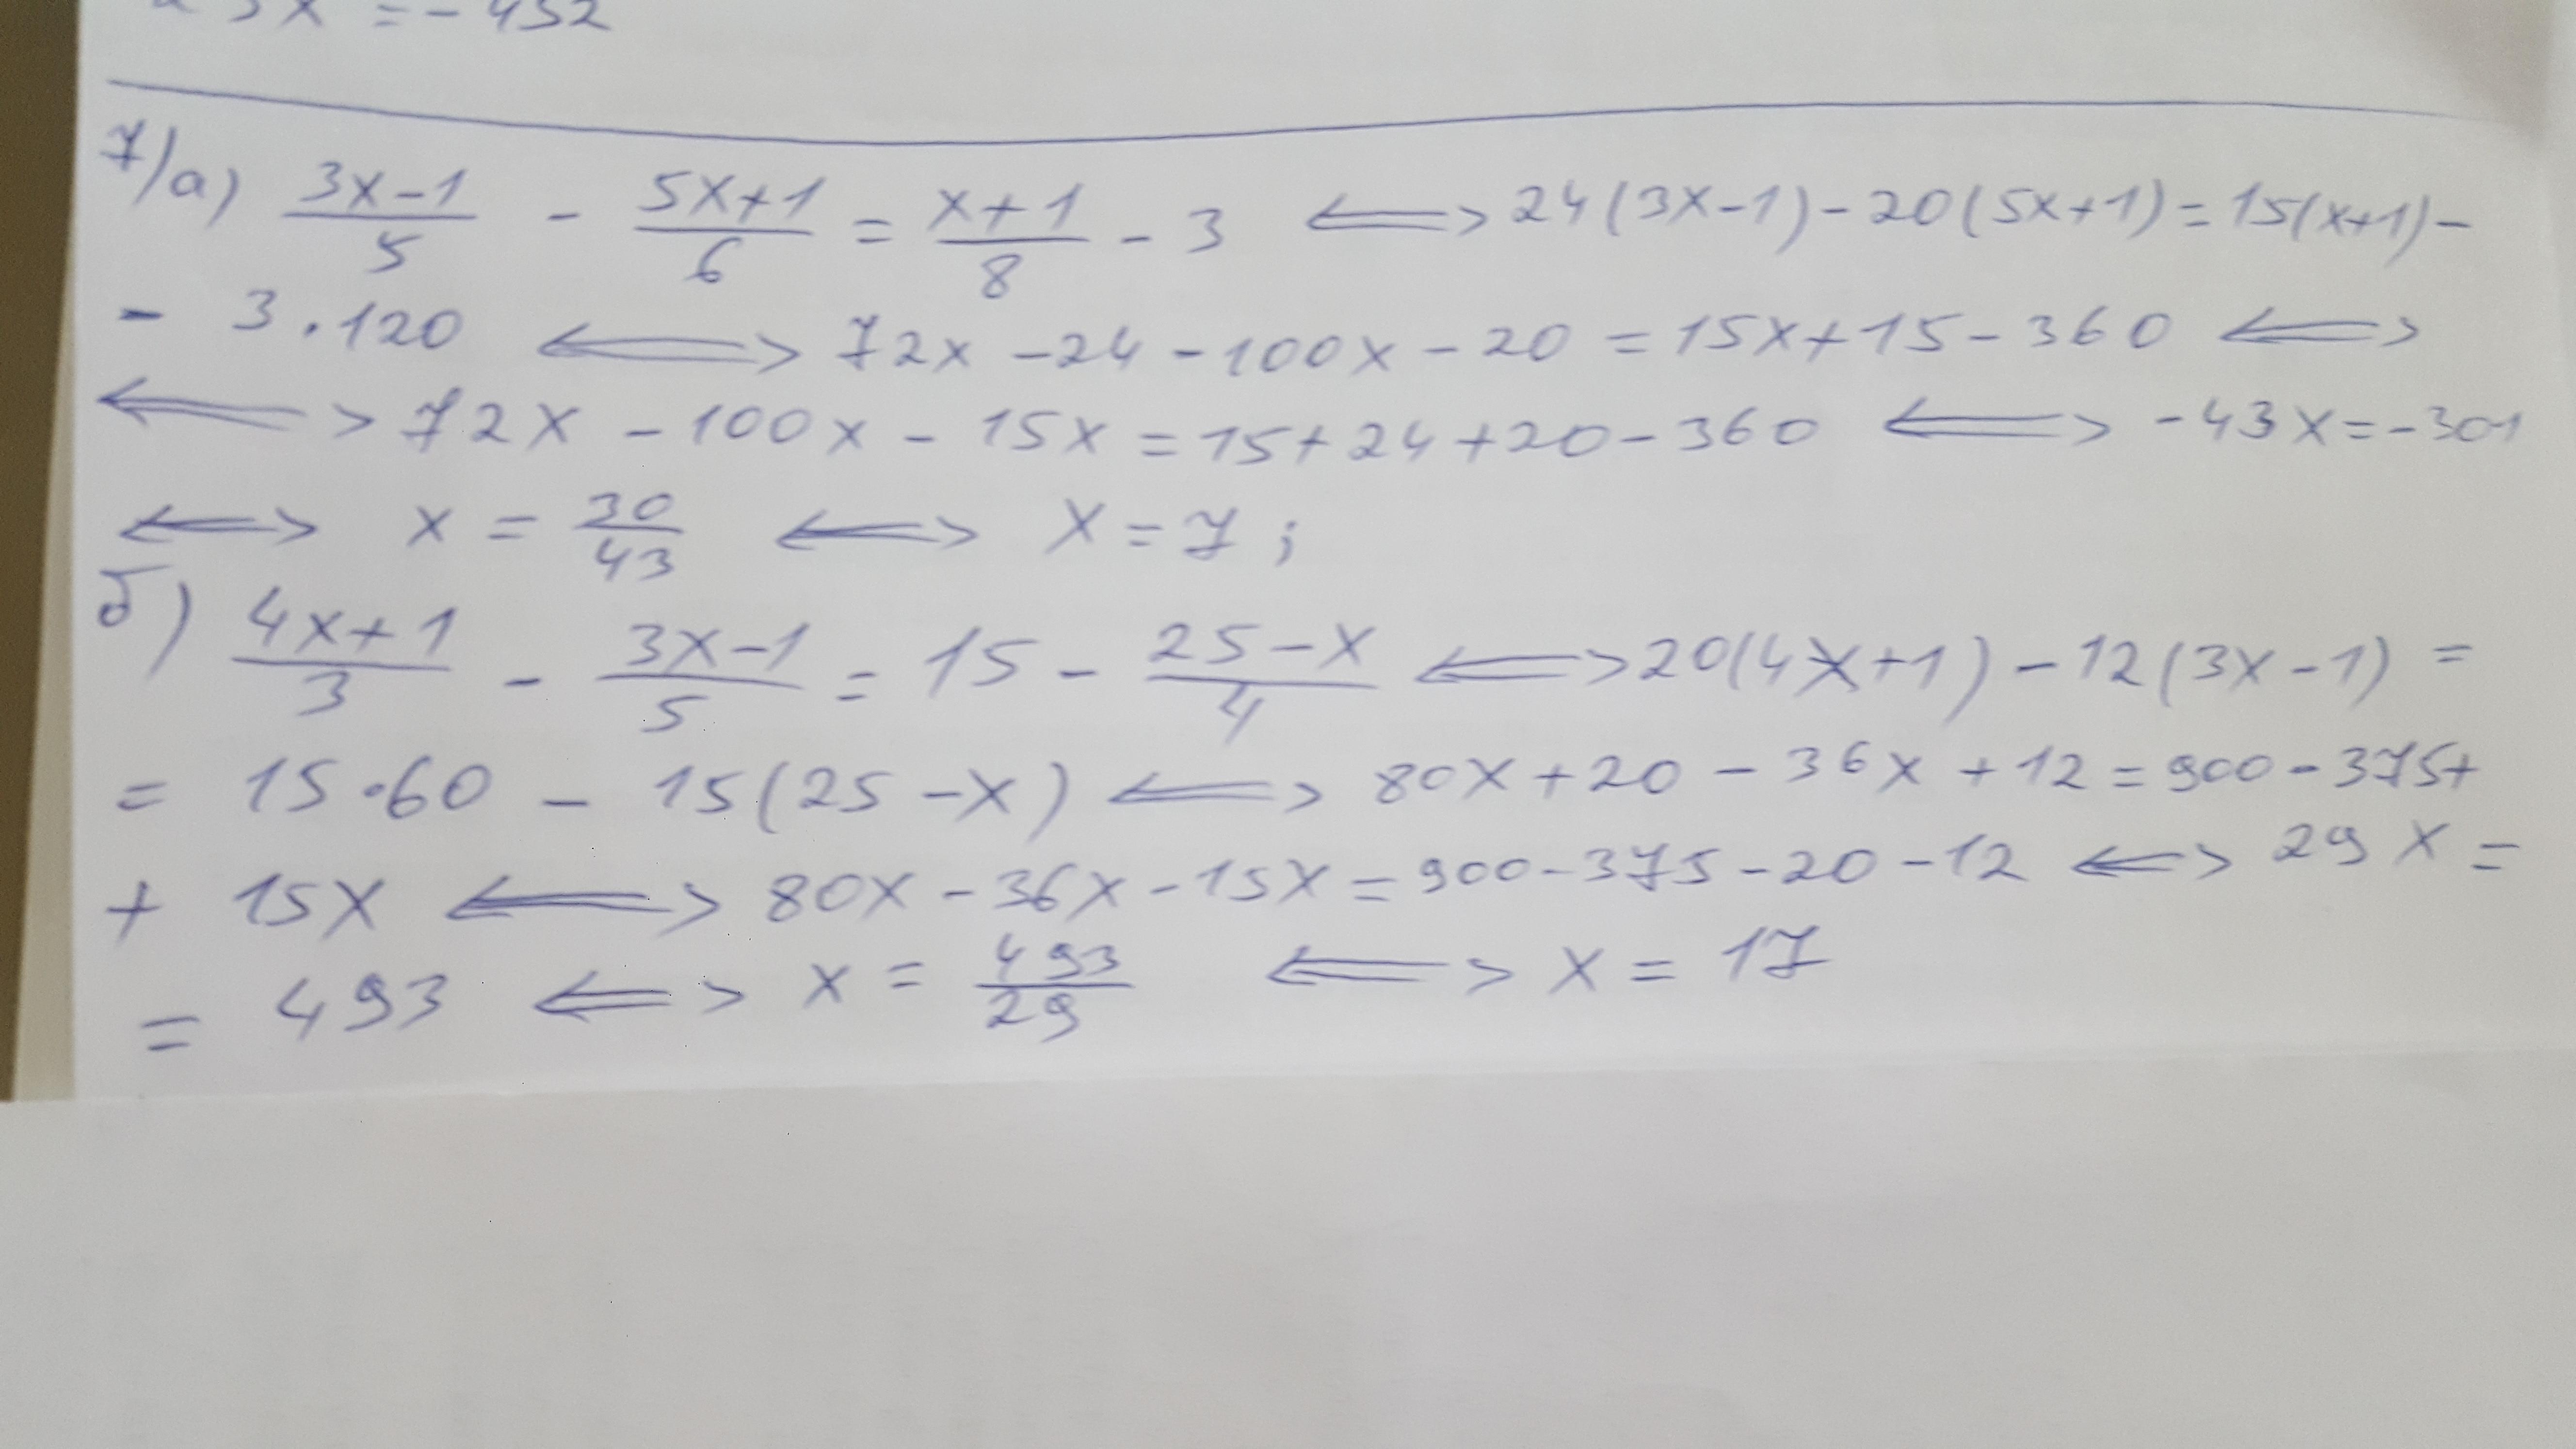 3x = - 452
7/а) (3x-1)/5 - (5x+1)/6 = (x+1)/8 - 3 <=> 24(3x-1)-20(5x+1)=15(x+1)-
- 3.120 <=> 72x -24 -100x -20 = 15x+15-360 <=>
<=> 72x -100x - 15x = 15+24+20-360 <=> -43x=-301
<=> x = 30/43 <=> x = 7 ;
б) (4x+1)/3 - (3x-1)/5 = 15 - (25-x)/4 <=> 20(4x+1) - 12(3x-1) =
= 15.60 - 15(25-x) <=> 80x+20 - 36x +12 = 900-375+
+ 15x <=> 80x-36x-15x=900-375-20-12 <=> 29x =
= 493 <=> x = 493/29 <=> x = 17